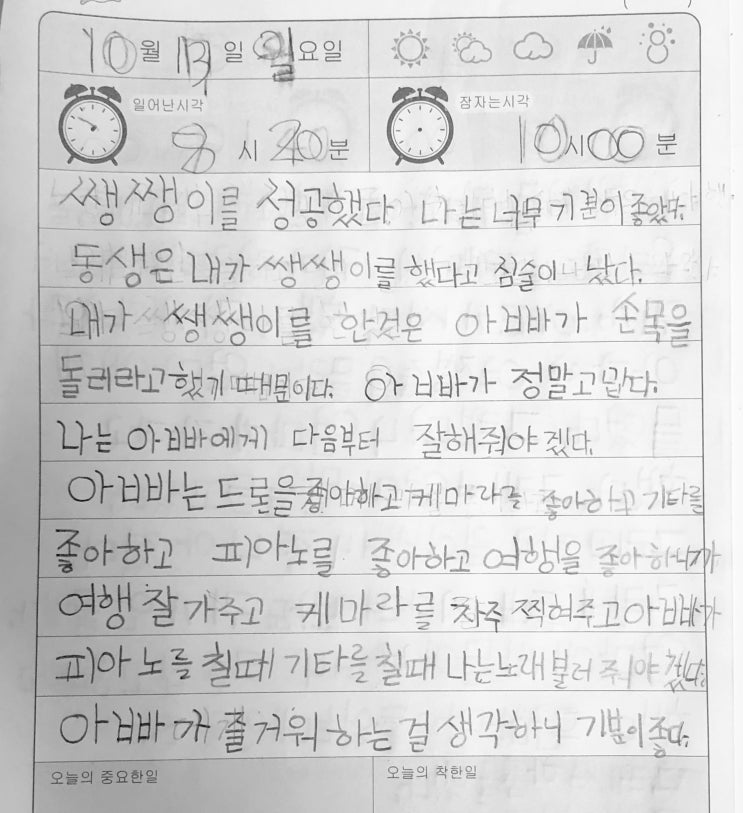 10월 13일 월요일
일어난시각
8시 30분
잠자는시각
10시00분
쌩쌩이를 성공했다 나는 너무 기분이 좋았다.
동생은 내가 쌩쌩이를 했다고 심술이 났다.
내가 쌩쌩이를 한것은 아빠가 손목을
돌려라고 했기 때문이다. 아빠가 정말고맙다.
나는 아빠에게 다음부터 잘해줘야 겠다.
아빠는 드론을 좋아하고 케마라를 좋아하고 기타를
좋아하고 피아노를 좋아하고 여행을 좋아하니까
여행 잘 가주고 케마라를 자주 찍혀주고 아빠가
피아노를 칠때 기타를 칠때 나는노래불러 줘야 겠다.
아빠가 즐거워 하는 걸 생각하니 기분이좋다.
오늘의 중요한일
오늘의 착한일